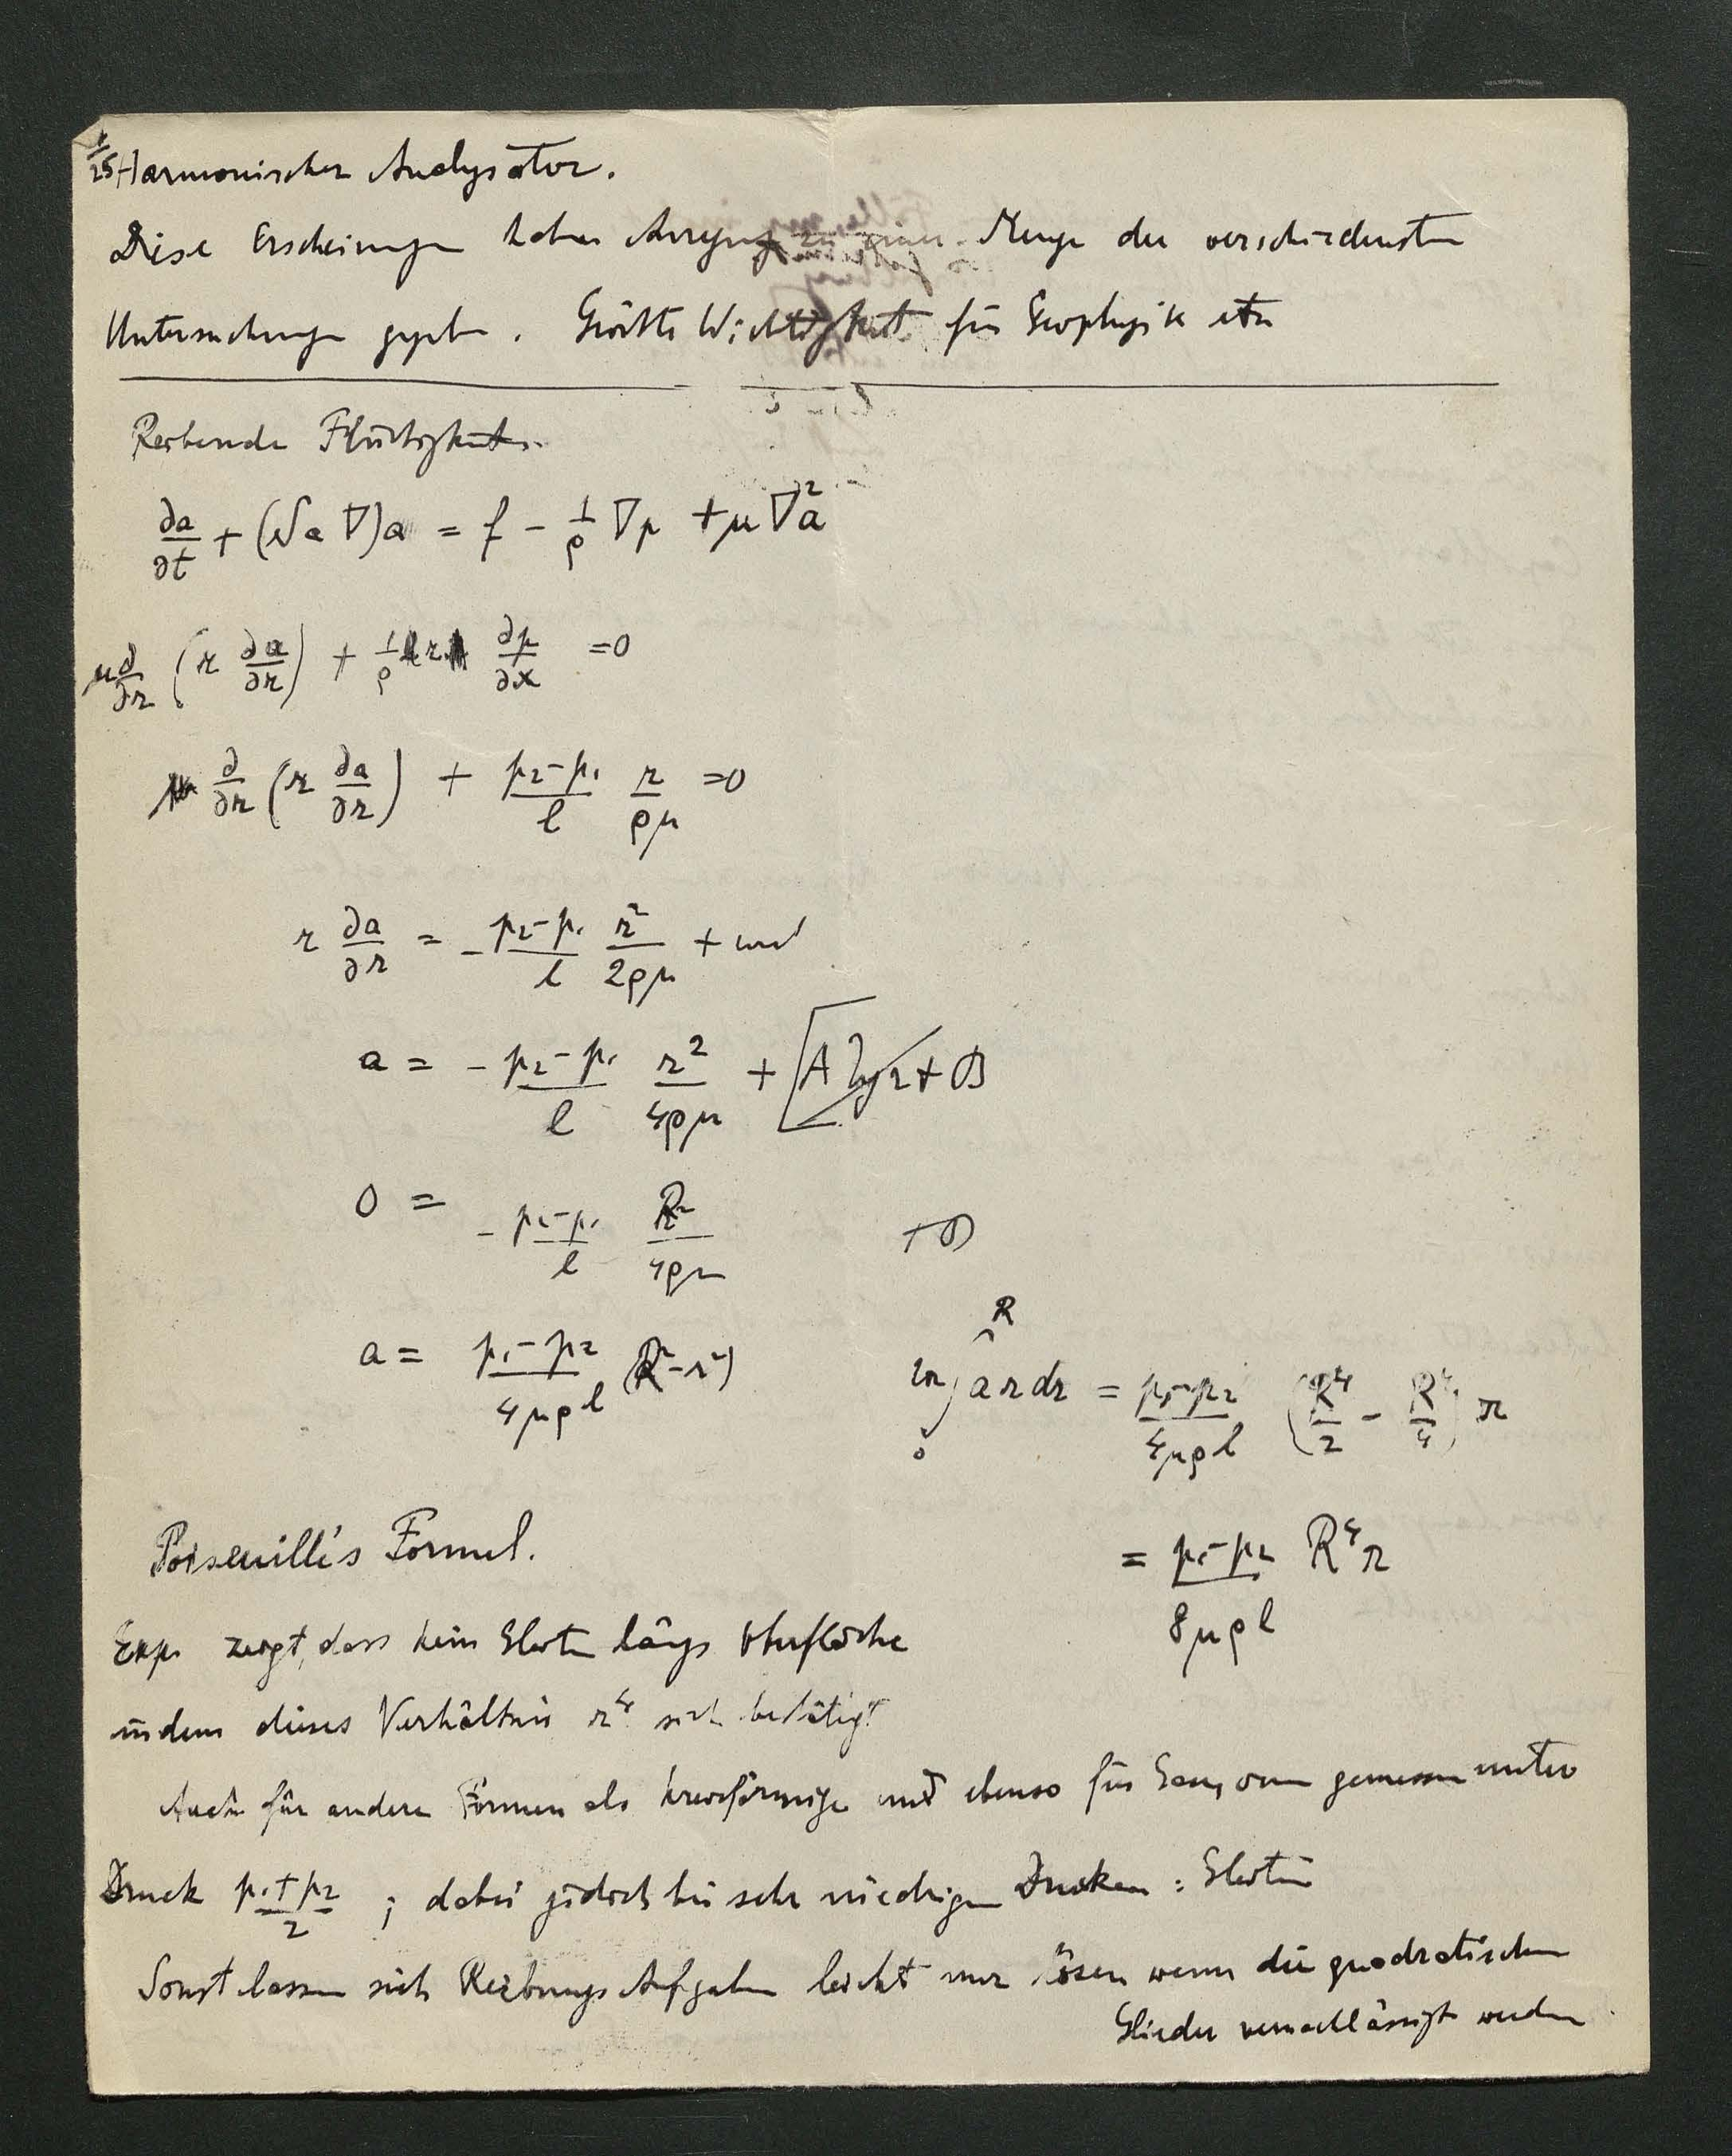 1/25 Harmonischer Analysator.
Diese Erscheinungen haben Anregung zu einer Menge der verschiedensten
Untersuchungen gegeben. Größte Wichtigkeit für Geophysik etc
Reibende Flüssigkeiten.
∂a/∂t + (a ∇)a = f − 1/ρ ∇p + μ ∇²a
μ ∂/∂r (r ∂a/∂r) + 1/ρ r ∂p/∂x = 0
∂/∂r (r ∂a/∂r) + (p₂−p₁)/l r/ρμ = 0
r ∂a/∂r = − (p₂−p₁)/l r²/2ρμ + const
a = − (p₂−p₁)/l r²/4ρμ + [A lg r + B
0 = − (p₂−p₁)/l R²/4ρμ + B
a = (p₁−p₂)/4μρl (R²−r²)
2π ∫₀ᴿ a r dr = (p₁−p₂)/4μρl (R⁴/2 − R⁴/4) π
= (p₁−p₂)/8μρl R⁴π
Poiseuille's Formel.
Exp. zeigt, dass kein Gleiten längs Oberfläche
indem dieses Verhältnis r⁴ sich bestätigt
Auch für andere Formen als kreisförmige und ebenso für Gas, wenn gemessen unter
Druck (p₁+p₂)/2 ; dabei jedoch bei sehr niedrigen Drucken: Gleiten
Sonst lassen sich Reibungs Aufgaben leicht nur lösen wenn die quadratischen
Glieder vernachlässigt werden